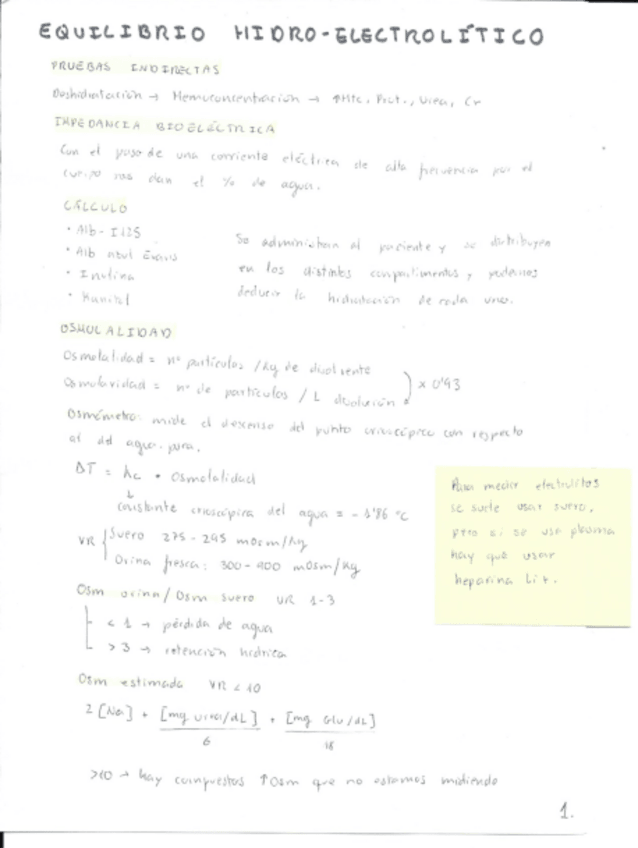 EQUILIBRIO HIDRO-ELECTROLÍTICO
PRUEBAS INDIRECTAS
Deshidratación → Hemoconcentración → ↑Htc, Prot., Urea, Cr
IMPEDANCIA BIOELÉCTRICA
Con el paso de una corriente eléctrica de alta frecuencia por el
cuerpo nos dan el % de agua.
CÁLCULO
• Alb-I125
• Alb azul Evans
• Inulina
• Manitol
Se administran al paciente y se distribuyen
en los distintos compartimentos y podemos
deducir la hidratación de cada uno.
OSMOLALIDAD
Osmolalidad = nº partículas /Kg de disolvente
Osmolaridad = nº de partículas / L disolución
) x 0'93
Osmómetro: mide el descenso del punto crioscópico con respecto
al del agua pura.
ΔT = Kc • Osmolalidad
↓
constante crioscópica del agua = -1'86 °C
VR
Suero 275-295 mOsm/Kg
Orina fresca: 300-900 mOsm/Kg
Osm orina/Osm suero VR 1-3
< 1 → pérdida de agua
> 3 → retención hídrica
Osm estimada VR < 10
2 [Na] + [mg urea/dL] + [mg Glu/dL]
6 18
>10 → hay compuestos ↑Osm que no estamos midiendo
Para medir electrolitos
se suele usar suero,
pero si se usa plasma
hay que usar
heparina Li+.
1.